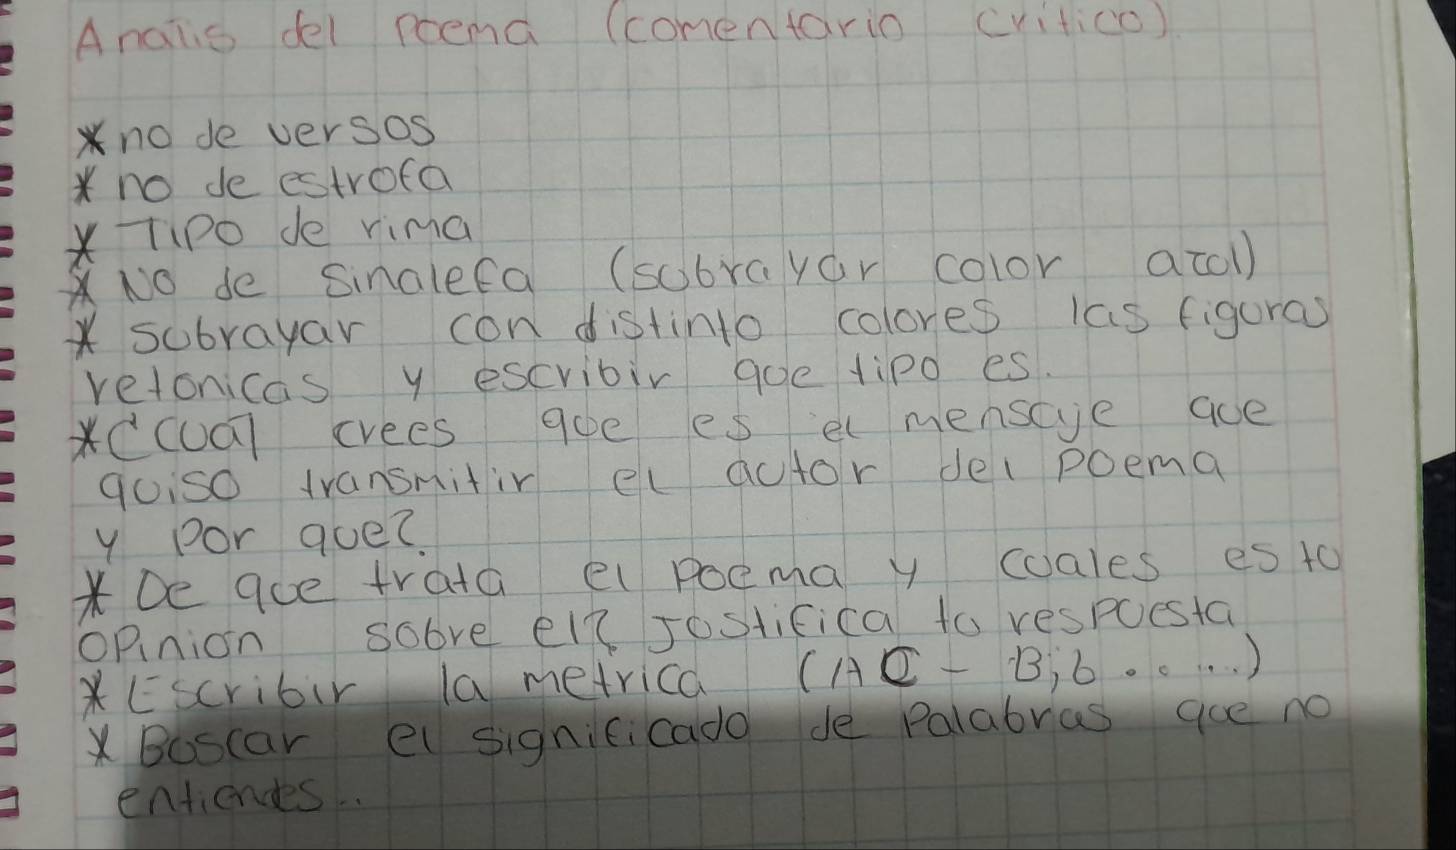 Analis del Poema (comentario critico)
* no de versos
* no de estrofa
* Tipo de rima
* No de Sinalefa (subrayar color azul)
* subrayar con distinto colores las figuras
retonicas y escribir que tipo es.
* ¿Cual crees que es el mensaje que
quiso transmitir el autor del poema
y por que?.
* De que trata el poema y cuales es tu
opinion sobre el? Justifica tu respuesta
* Escribir la metrica (A C - B; b . . ...)
* Buscar el significado de Palabras que no
entiendes..